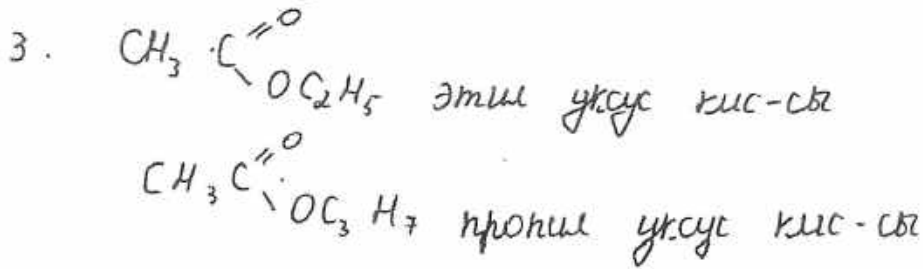 3. CH₃ C=O
OC₂H₅ этил уксус кис-сы
CH₃C=O
OC₃H₇ пропил уксус кис-сы